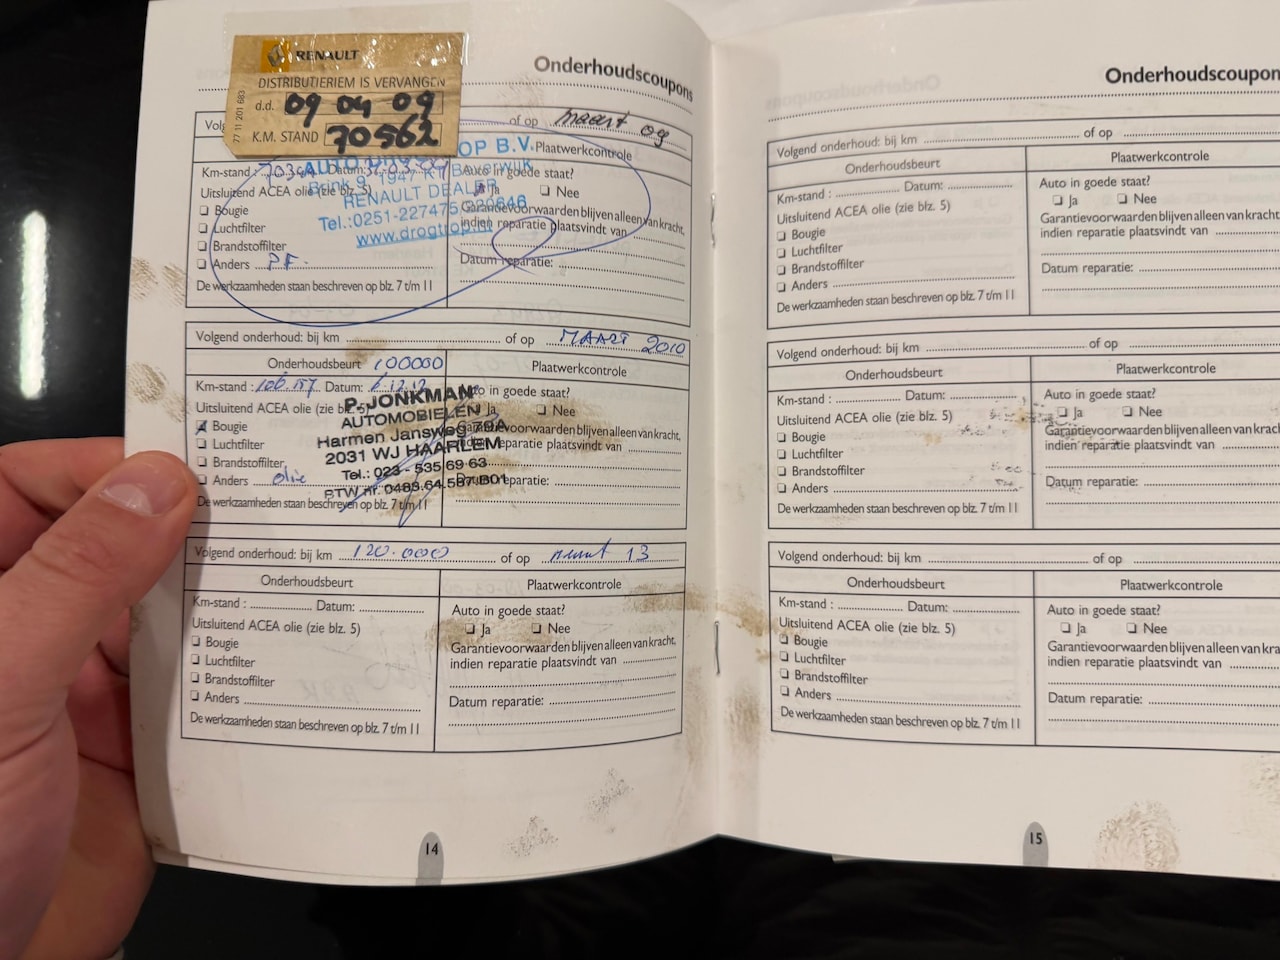 RENAULT
DISTRIBUTIERIEM IS VERVANGEN
d.d. 09 04 09
K.M. STAND 70562
77 11 201 683
Onderhoudscoupons
of op maart 09
Plaatwerkcontrole
OP B.V.
Km-stand : Datum:
Auto in goede staat?
Uitsluitend ACEA olie (zie blz. 5)
Ja
Nee
Brink 9, 1947 Beverwijk
RENAULT DEALER
Tel.:0251-227475
www.drogtrop.nl
Bougie
Luchtfilter
Brandstoffilter
Anders P.F.
Garantievoorwaarden blijven alleen van kracht,
indien reparatie plaatsvindt van
Datum reparatie:
De werkzaamheden staan beschreven op blz. 7 t/m 11
Volgend onderhoud: bij km of op MAART 2010
Onderhoudsbeurt 100000
Plaatwerkcontrole
Km-stand : 106.157 Datum: 6.12.12
Auto in goede staat?
Uitsluitend ACEA olie (zie blz. 5)
Ja
Nee
P. JONKMAN
AUTOMOBIELEN
Harmen Jansweg 79A
2031 WJ HAARLEM
Tel.: 023 - 535 69 63
BTW nr. 0483.64.587.B01
Bougie
Luchtfilter
Brandstoffilter
Anders olie
Garantievoorwaarden blijven alleen van kracht,
indien reparatie plaatsvindt van
Datum reparatie:
De werkzaamheden staan beschreven op blz. 7 t/m 11
Volgend onderhoud: bij km 120.000 of op 13
Onderhoudsbeurt
Plaatwerkcontrole
Km-stand : Datum:
Auto in goede staat?
Uitsluitend ACEA olie (zie blz. 5)
Ja
Nee
Bougie
Garantievoorwaarden blijven alleen van kracht,
Luchtfilter
indien reparatie plaatsvindt van
Brandstoffilter
Anders
Datum reparatie:
De werkzaamheden staan beschreven op blz. 7 t/m 11
14
Onderhoudscoupon
Volgend onderhoud: bij km of op
Onderhoudsbeurt
Plaatwerkcontrole
Km-stand : Datum:
Auto in goede staat?
Uitsluitend ACEA olie (zie blz. 5)
Ja
Nee
Bougie
Garantievoorwaarden blijven alleen van kracht,
Luchtfilter
indien reparatie plaatsvindt van
Brandstoffilter
Datum reparatie:
Anders
De werkzaamheden staan beschreven op blz. 7 t/m 11
Volgend onderhoud: bij km of op
Onderhoudsbeurt
Plaatwerkcontrole
Km-stand : Datum:
Auto in goede staat?
Uitsluitend ACEA olie (zie blz. 5)
Ja
Nee
Bougie
Garantievoorwaarden blijven alleen van kracht
Luchtfilter
indien reparatie plaatsvindt van
Brandstoffilter
Datum reparatie:
Anders
De werkzaamheden staan beschreven op blz. 7 t/m 11
Volgend onderhoud: bij km of op
Onderhoudsbeurt
Plaatwerkcontrole
Km-stand : Datum:
Auto in goede staat?
Uitsluitend ACEA olie (zie blz. 5)
Ja
Nee
Bougie
Garantievoorwaarden blijven alleen van kra
Luchtfilter
indien reparatie plaatsvindt van
Brandstoffilter
Datum reparatie:
Anders
De werkzaamheden staan beschreven op blz. 7 t/m 11
15